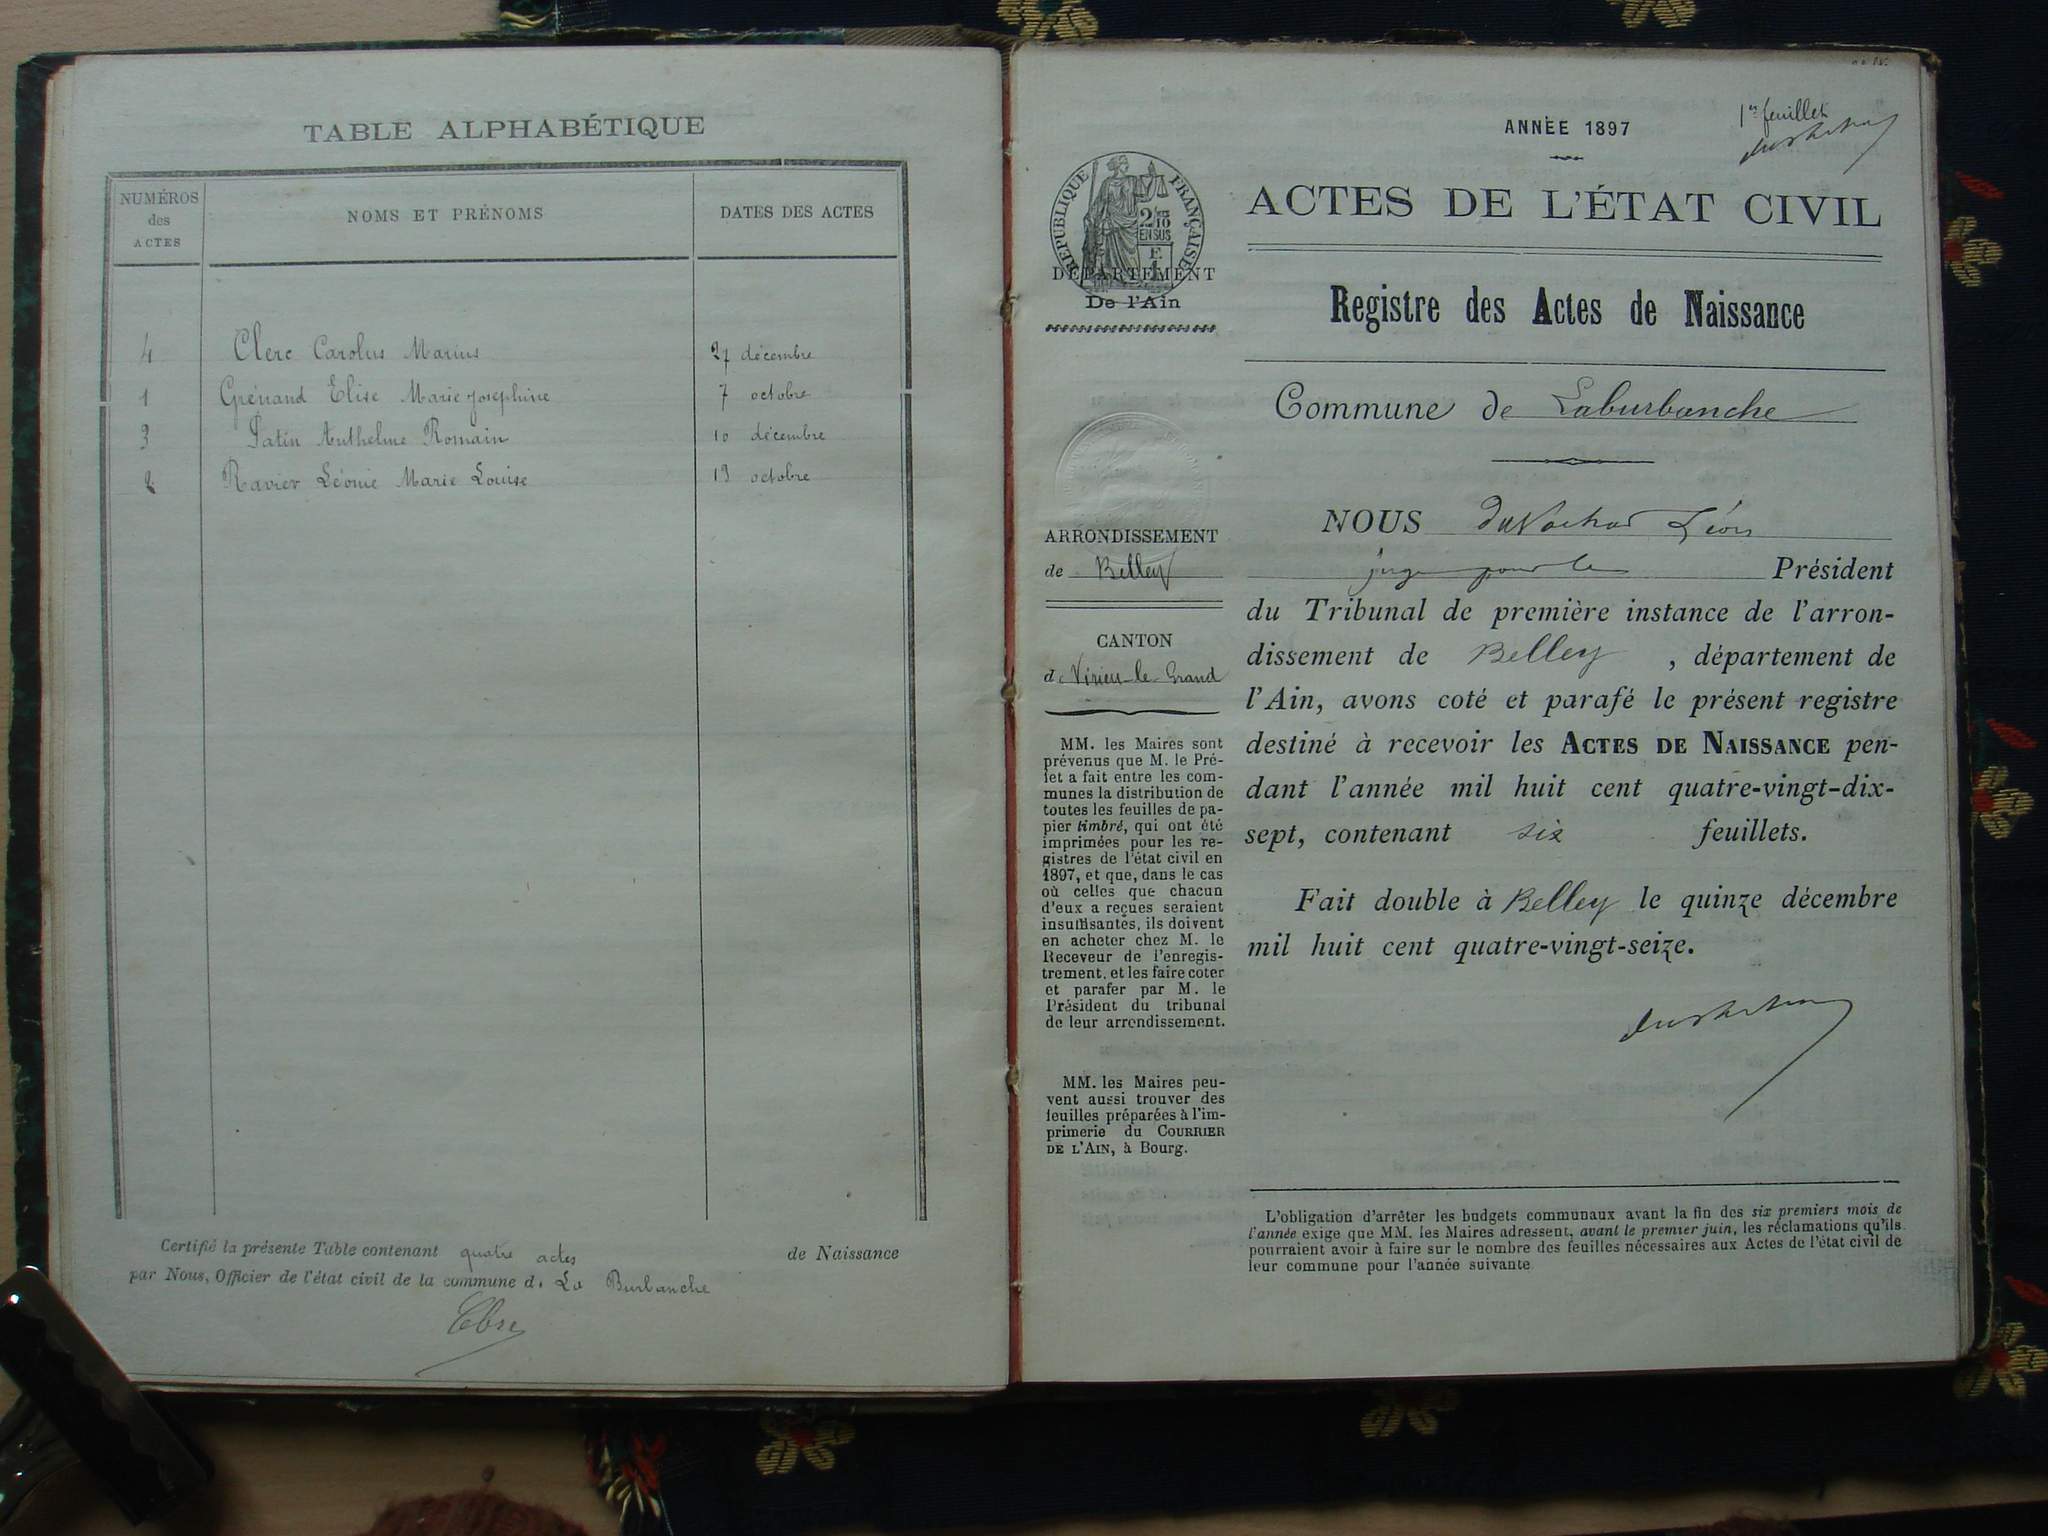 TABLE ALPHABÉTIQUE
NUMÉROS
des
ACTES
NOMS ET PRÉNOMS
DATES DES ACTES
4 Clerc Carolus Marius 27 décembre
1 Grénand Elise Marie Josephine 7 octobre
3 Patin Anthelme Romain 10 décembre
2 Ravier Léonie Marie Louise 13 octobre
Certifié la présente Table contenant quatre actes de Naissance
par Nous, Officier de l'état civil de la commune d. La Burbanche
1er feuillet
ANNÉE 1897
RÉPUBLIQUE FRANÇAISE
2/10
EN SUS
DÉPARTEMENT
De l'Ain
ACTES DE L'ÉTAT CIVIL
Registre des Actes de Naissance
Commune de Laburbanche
ARRONDISSEMENT
de Belley
CANTON
de Virieu-le-Grand
MM. les Maires sont
prévenus que M. le Pré-
fet a fait entre les com-
munes la distribution de
toutes les feuilles de pa-
pier timbré, qui ont été
imprimées pour les re-
gistres de l'état civil en
1897, et que, dans le cas
où celles que chacun
d'eux a reçues seraient
insuffisantes, ils doivent
en acheter chez M. le
Receveur de l'enregis-
trement, et les faire coter
et parafer par M. le
Président du tribunal
de leur arrondissement.
MM. les Maires peu-
vent aussi trouver des
feuilles préparées à l'im-
primerie du COURRIER
DE L'AIN, à Bourg.
NOUS Léon
juge pour le Président
du Tribunal de première instance de l'arron-
dissement de Belley, département de
l'Ain, avons coté et parafé le présent registre
destiné à recevoir les ACTES DE NAISSANCE pen-
dant l'année mil huit cent quatre-vingt-dix-
sept, contenant six feuillets.
Fait double à Belley le quinze décembre
mil huit cent quatre-vingt-seize.
L'obligation d'arrêter les budgets communaux avant la fin des six premiers mois de
l'année exige que MM. les Maires adressent, avant le premier juin, les réclamations qu'ils
pourraient avoir à faire sur le nombre des feuilles nécessaires aux Actes de l'état civil de
leur commune pour l'année suivante